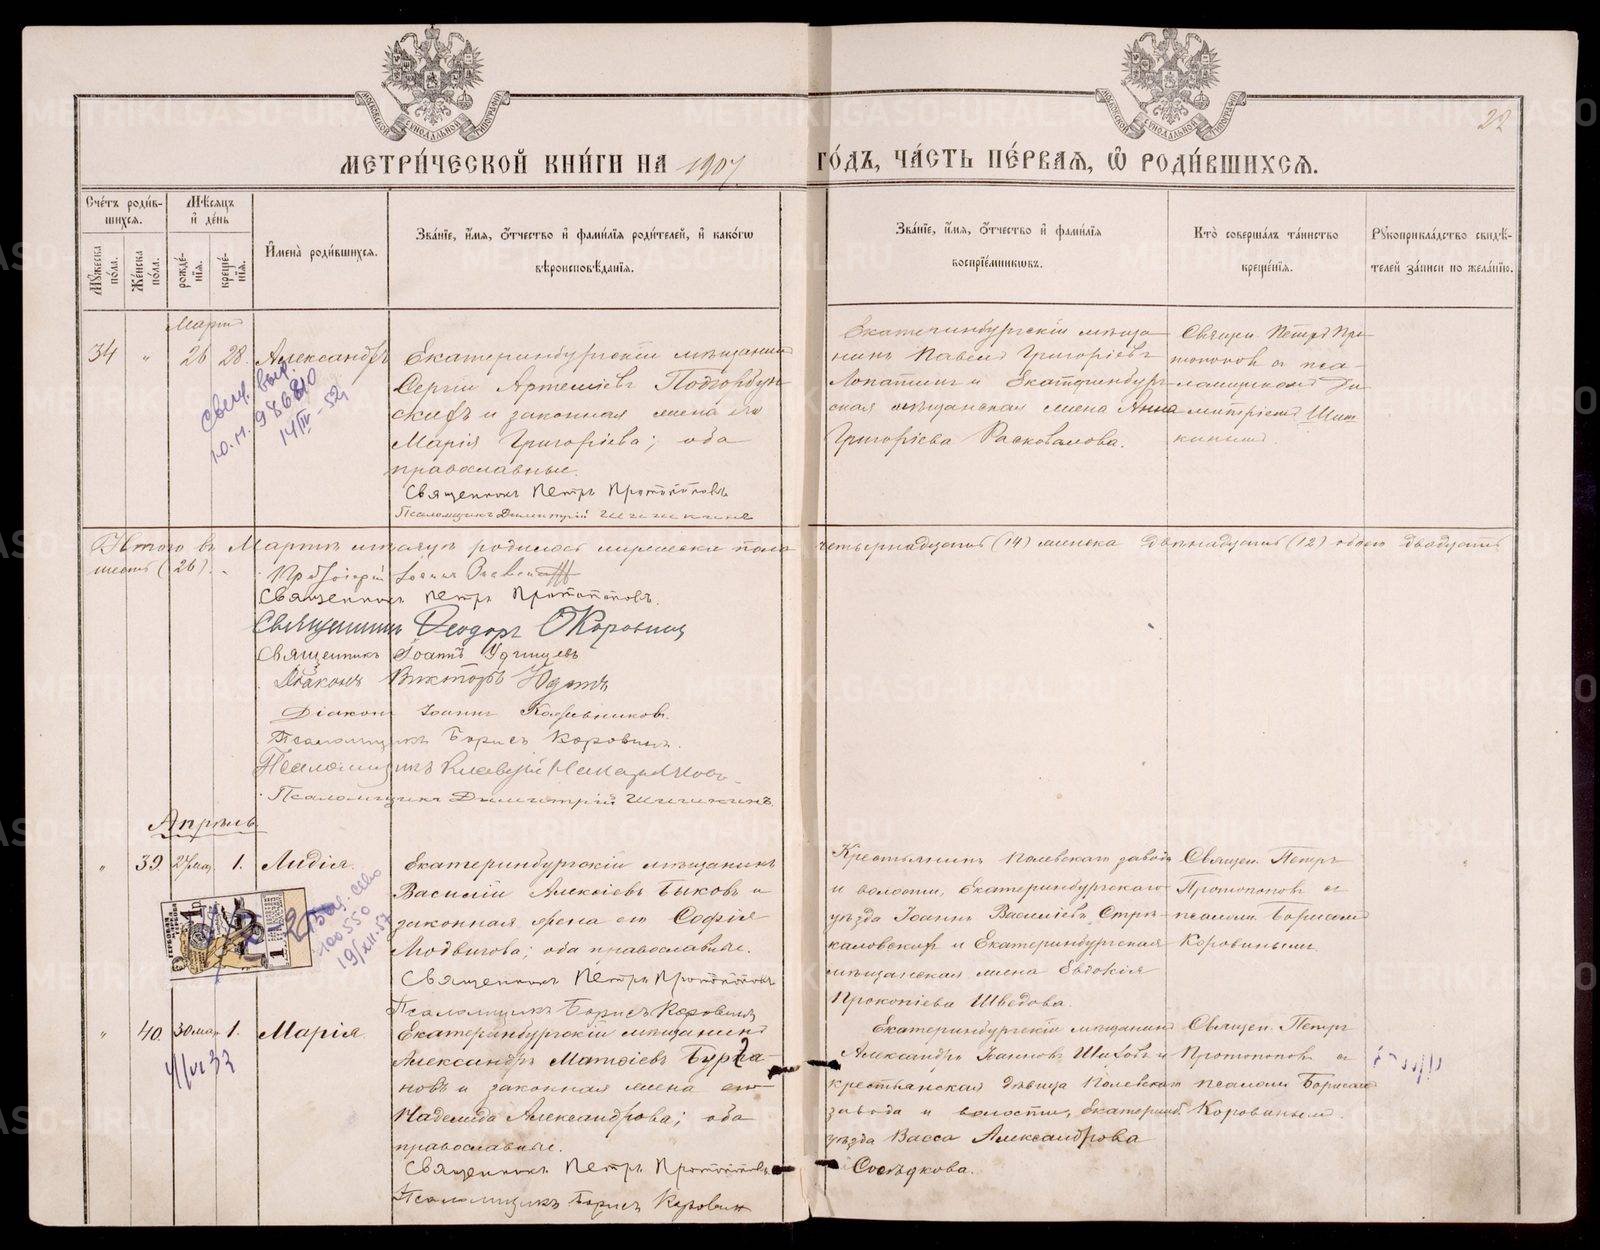 МЕТРИ́ЧЕСКОЙ КНИ́ГИ НА 1907 ГО́ДЪ, ЧА́СТЬ ПЕ́РВАѦ, Ѽ РОДИ́ВШИХСѦ.
22
Сче́тъ роди́в-
шихсѧ.
Мѣ́сѧцъ
и҆ де́нь
Мꙋ́жеска по́ла.
Же́нска по́ла.
рожде́-
нїѧ.
креще́-
нїѧ.
И҆мена̀ роди́вшихсѧ.
Зва́нїе, и҆́мѧ, ѻ҆́тчество и҆ фами́лїѧ роди́телей, и҆ како́гѡ
вѣроисповѣ́данїѧ.
Зва́нїе, и҆́мѧ, ѻ҆́тчество и҆ фами́лїѧ
воспрїе́мникѡвъ.
Кто̀ соверша́лъ та́инство
креще́нїѧ.
Рꙋкоприкла́дство свидѣ́-
телей за́писи по жела́нїю.
Мартъ
34 " 26 28. Александръ
Екатеринбургскій мѣщанинъ
Сергій Артеміевъ
и законная жена его
Марія Григоріева; оба
православные.
Священникъ Петръ Протопоповъ
Псаломщикъ Димитрій Шишкинъ
Екатеринбургскій мѣща-
нинъ Павелъ Григоріевъ
Лопатинъ и Екатеринбург-
ская мѣщанская жена Анна
Григоріева Расковалова.
Священ. Петръ Про-
топоповъ съ пса-
ломщикомъ Ди-
митріемъ Шиш-
кинымъ.
14/III-52
Итого въ Мартѣ мѣсяцѣ родилось мужеска пола четырнадцать (14) женска двѣнадцать (12) обоего двадцать
шесть (26).
Священникъ Петръ Протопоповъ.
Священникъ Ѳеодоръ Коровинъ
Священникъ Іоаннъ Удинцевъ
Діаконъ Викторъ
Діаконъ Іоаннъ
Псаломщикъ Борисъ Коровинъ.
Псаломщикъ
Псаломщикъ Димитрій Шишкинъ
Апрѣль
" 39. 27 мар. 1. Лидія.
Екатеринбургскій мѣщанинъ
Василій Алексіевъ Быковъ и
законная жена его Софія
Людвигова; оба православные.
Священникъ Петръ Протопоповъ
Псаломщикъ Борисъ Коровинъ
Крестьянинъ Полевскаго завода
и волости, Екатеринбургскаго
уѣзда Іоаннъ Василіевъ
и Екатеринбургская
мѣщанская жена Евдокія
Прокопіева Шведова.
Священ. Петръ
Протопоповъ съ
псаломщ. Борисомъ
Коровинымъ
100550
19/XII-57
" 40. 30 мар. 1. Марія.
Екатеринбургскій мѣщанинъ
Александръ Матѳіевъ
и законная жена его
Надежда Александрова; оба
православные.
Священникъ Петръ Протопоповъ
Псаломщикъ Борисъ Коровинъ
Екатеринбургскій мѣщанинъ
Александръ Іоанновъ и
крестьянская дѣвица Полевскаго
завода и волости, Екатеринб.
уѣзда Васса Александрова
Сосѣдкова.
Священ. Петръ
Протопоповъ съ
псаломщ. Борисомъ
Коровинымъ.
METRIKI.GASO-URAL.RU